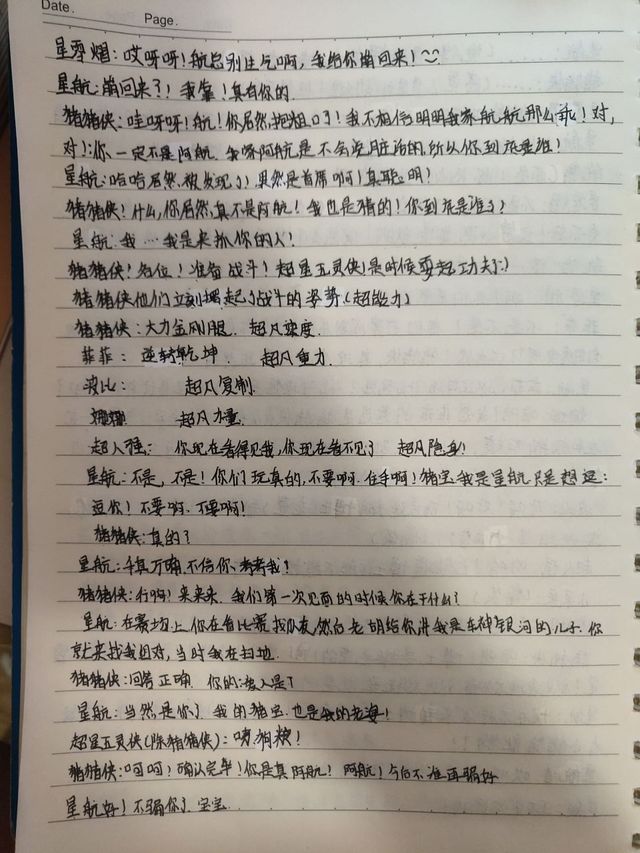 Date.
Page.
星雾熠：哎呀呀！航总别生气啊，我给你崩回来！
星航：崩回来了！我靠！真有你的.
猪猪侠：哇呀呀！航！你居然把粗口了！我不相信明明我家航航那么乖！对，
对！：你一定不是阿航. 我家阿航是不会说脏话的，所以你到底是谁！
星航：哈哈居然被发现了！果然是首席啊！真聪明！
猪猪侠！什么，你居然真不是阿航！我也是猜的！你到底是谁？
星航：我…我是来抓你的人！
猪猪侠！各位！准备战斗！超星五灵侠！是时候耍起功夫了：）
猪猪侠他们立刻摆起了战斗的姿势（超能力）
猪猪侠：大力金刚腿. 超凡速度.
菲菲：逆转乾坤. 超凡重力.
波比： 超凡复制.
娜娜 超凡力量.
超人强：你现在看得见我，你现在看不见了 超凡隐身！
星航：不是，不是！你们玩真的，不要啊. 住手啊！猪宝我是星航只是想逗：
逗你！不要啊. 不要啊！
猪猪侠：真的？
星航：千真万确. 不信你、考考我！
猪猪侠：行啊！来来来. 我们第一次见面的时候你在干什么？
星航：在赛场上，你在看比赛找队友，然后老胡给你讲我是车神银河的儿子. 你
就来找我组队，当时我在扫地.
猪猪侠：回答正确. 你的爱人是？
星航：当然是你了. 我的猪宝. 也是我的老婆！
超星五灵侠（除猪猪侠）：嘖. 狗粮！
猪猪侠：呵呵！确认完毕！你是真阿航！阿航！今后不准再骗好
星航：好！不骗你了. 宝宝.